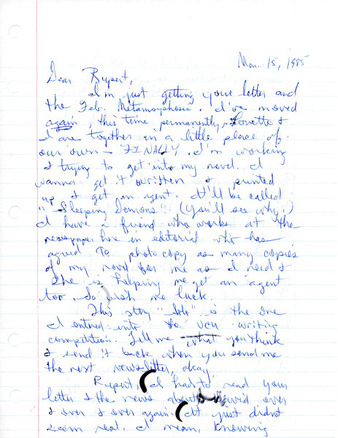 Mar. 15, 1985
Dear Rupert,
I'm just getting your letter and
the Feb. Metamorphosis. I've moved
again, this time, permanently, &
I are together in a little place of
our own – FINALLY. I'm working
& trying to get into my novel. I
wanna get it written & printed
up & get an agent. It'll be called
"Sleeping Demons". (You'll see why.)
I have a friend who works at the
newspaper here in editorial who has
agreed to photocopy as many copies
of my novel for me as I need &
she is helping me get an agent
too. So wish me luck.
This story is the one
I entered into the VCU writing
competition. Tell me what you think
& send it back when you send me
the next newsletter, okay.
Rupert, I had to read your
letter & the news about over
& over & over again. It just didn't
seem real. I mean, knowing